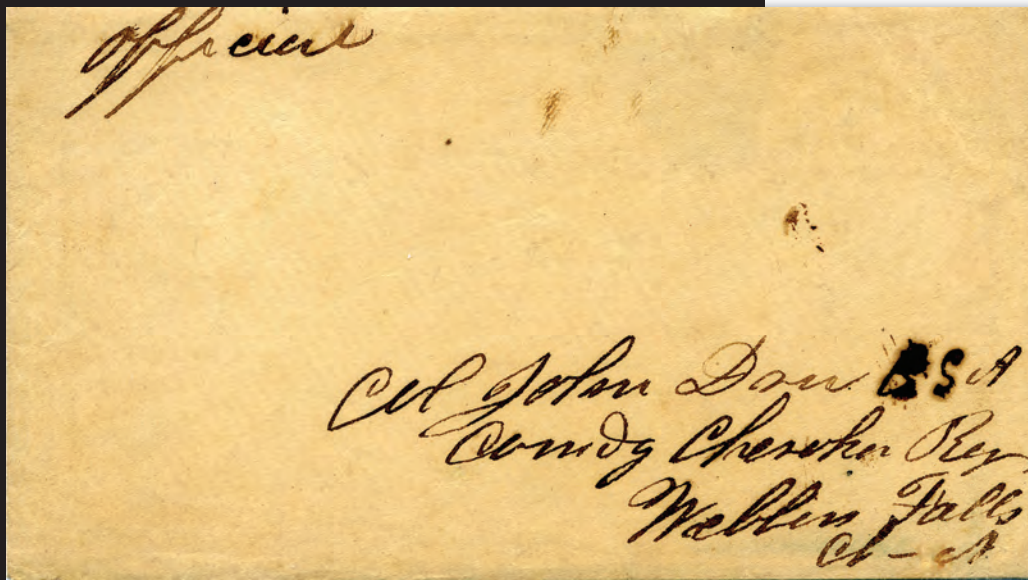 Official
Col John Drew CSA
Comdg Cherokee Reg
Webbers Falls
C - N